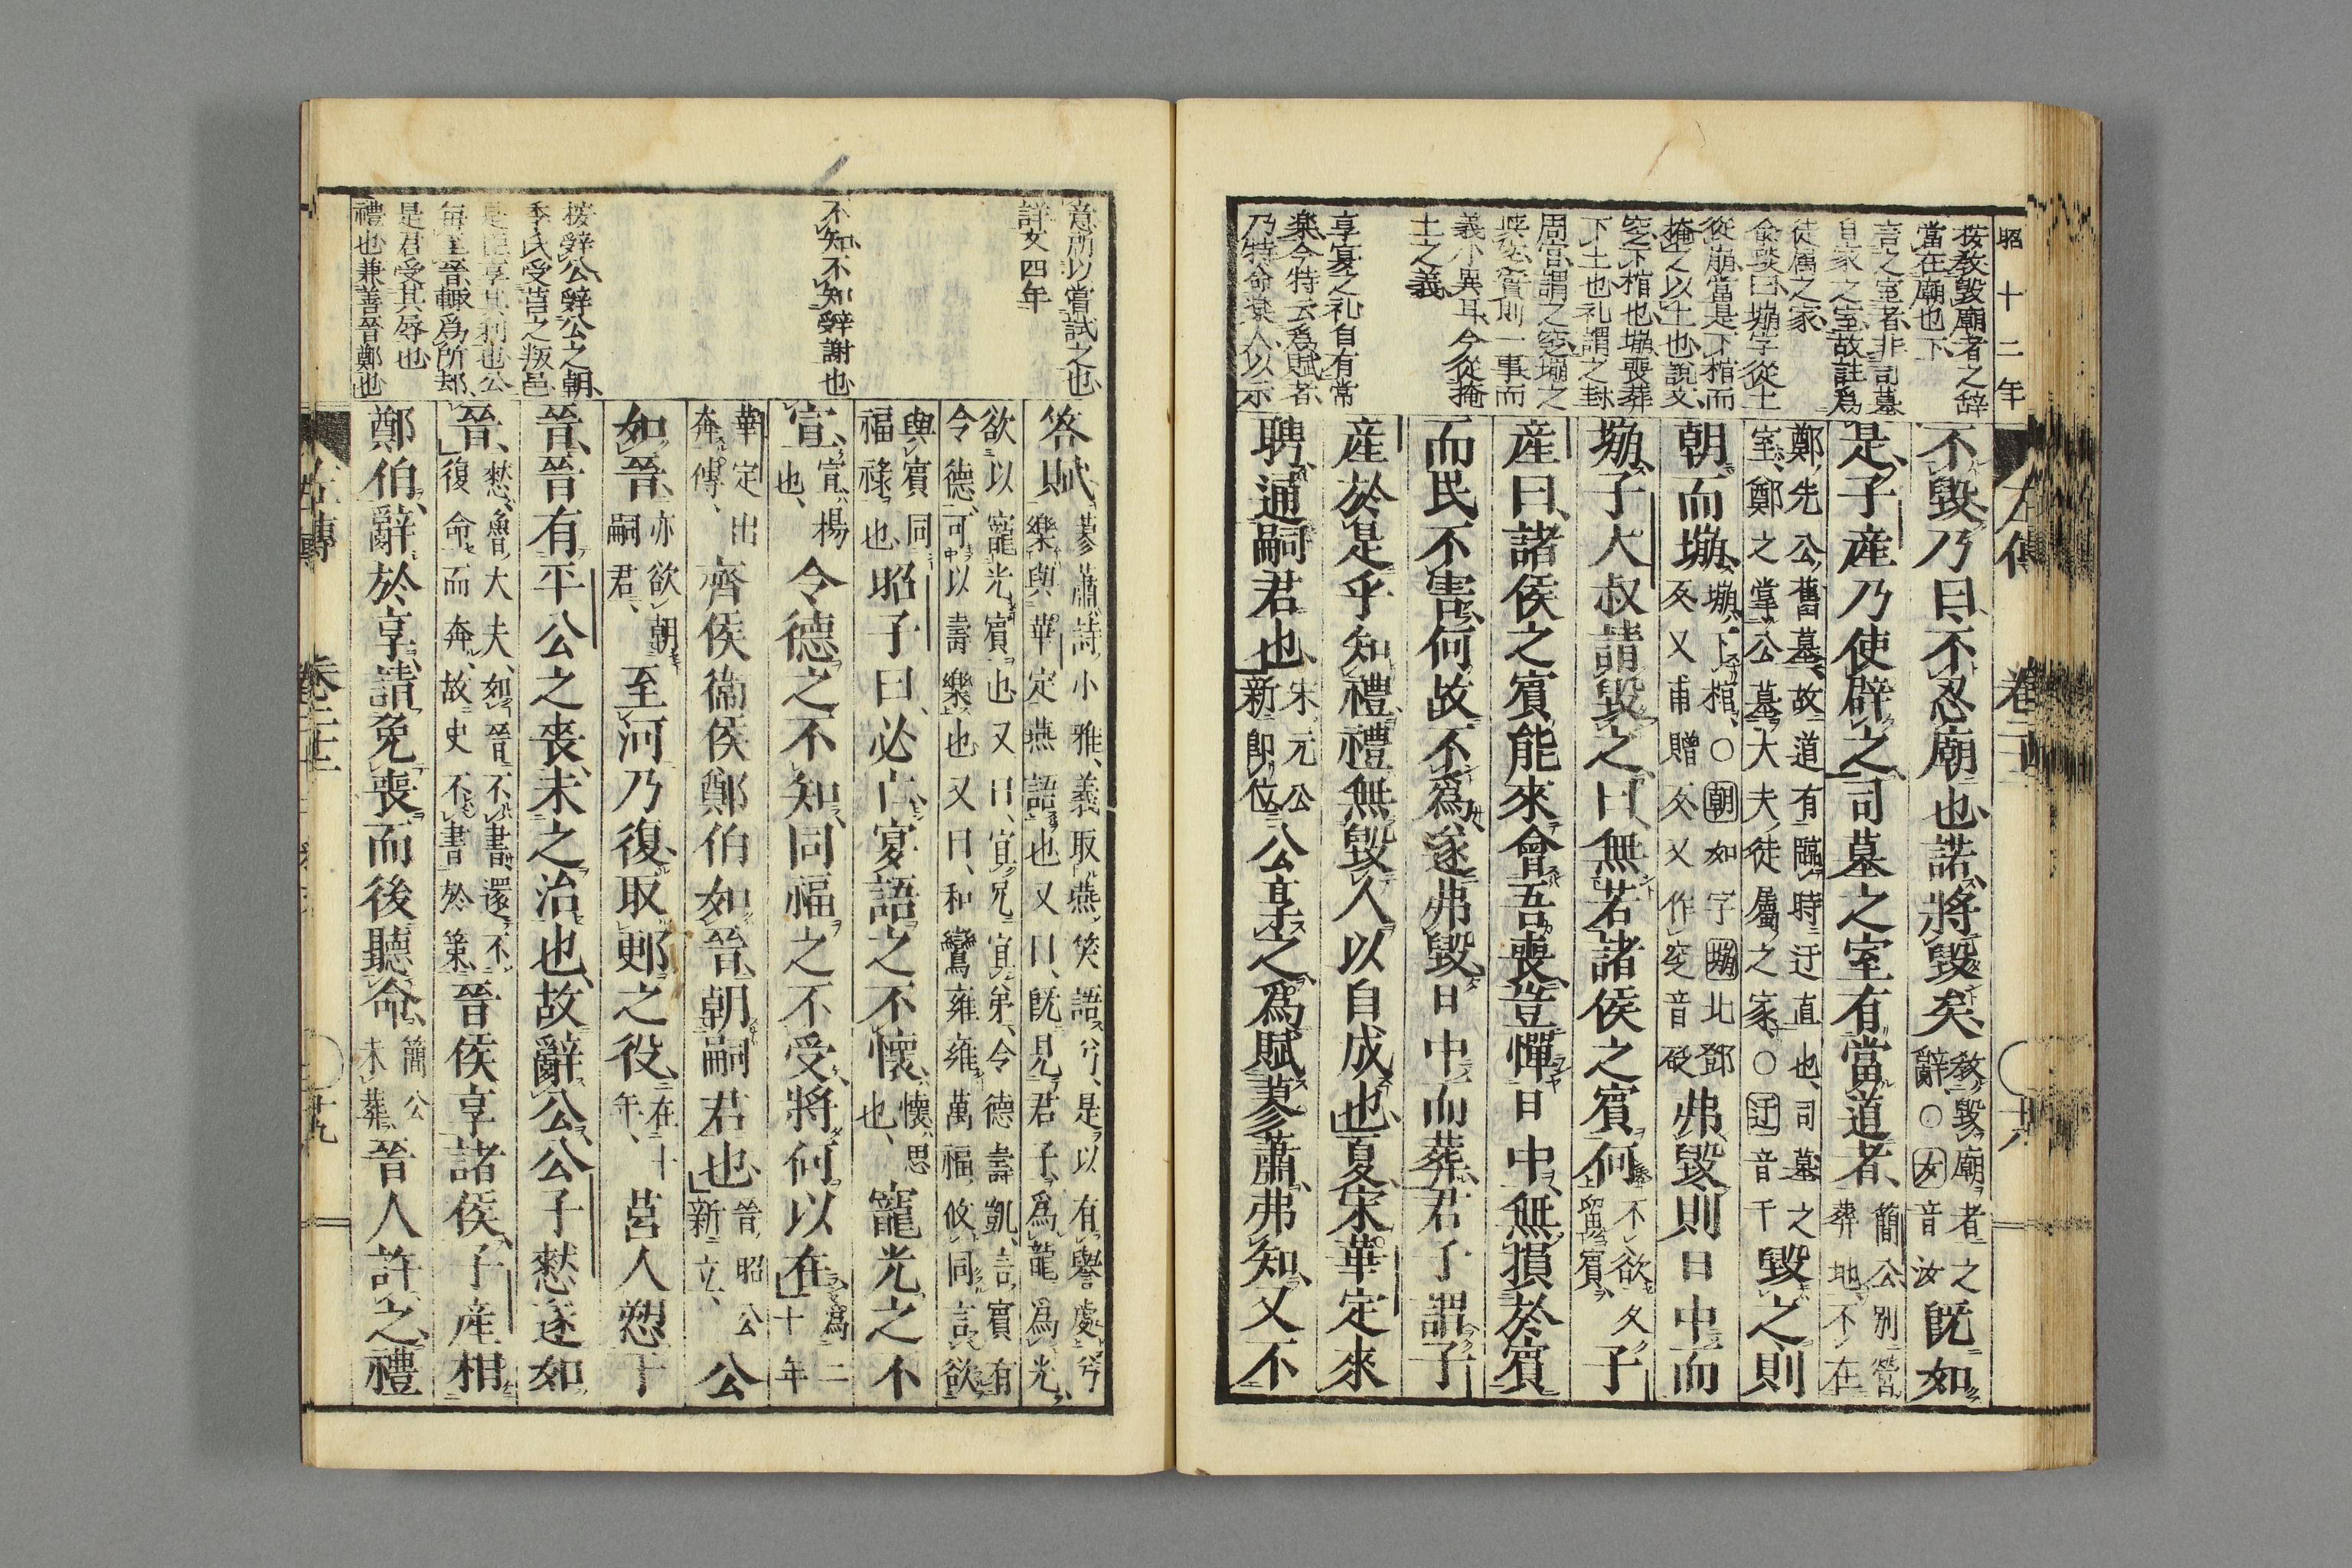 昭十二年
左傳 卷二十二
按教毀廟者之辞
當在廟也下
言之室者非司墓
自家之室故註爲
徒屬之家
從崩當是下棺而
掩之以土也說文
窆下棺也堋喪葬
下土也礼謂之封
周官謂之窆堋之
與窆實則一事而
義小異耳今從掩
土之義
享宴之礼自有常
樂今特云爲賦者
乃特命樂人以示
不毀乃曰不忍廟也諾將毀矣教毀廟者之辭○女音汝既如
是子產乃使辟之司墓之室有當道者簡公別營葬地不在
鄭先公舊墓故道有臨時迂直也司墓之室鄭之掌公墓大夫徒屬之家○迂音于毀之則
朝而塴塴下棺○朝如字塴北鄧反又甫贈反又作窆音砭弗毀則日中而
塴子大叔請毀之曰無若諸侯之賓何不欲久留賓子
產曰諸侯之賓能來會吾喪豈憚日中無損於賓
而民不害何故不爲遂弗毀日中而葬君子謂子
產於是乎知禮禮無毀人以自成也夏宋華定來
聘通嗣君也宋元公新即位公享之爲賦蓼蕭弗知又不
意所以嘗試之也
詳文四年
不知不知辞謝也
按辞公辞公之朝
季氏受莒之叛邑
是臣享其利也公
每至晉輙爲所却
是君受其辱也
禮也兼善晉鄭也
答賦蓼蕭詩小雅義取燕笑語兮是以有譽處兮樂與華定燕語也又曰既見君子爲龍爲光
欲以寵光賓也又曰宜兄宜弟令德壽凱言賓有令德可以壽樂也又曰和鸞雍雍萬福攸同言欲
與賓同福祿也昭子曰必亡宴語之不懷懷思也寵光之不
宣宣楊也令德之不知同福之不受將何以在爲二十年
華定出奔傳齊侯衞侯鄭伯如晉朝嗣君也晉昭公新立公
如晉亦欲朝嗣君至河乃復取郠之役在十年莒人愬于
晉晉有平公之喪未之治也故辭公公子憖遂如
晉憖魯大夫如晉不書還不復命而奔故史不書於策晉侯享諸侯子產相
鄭伯辭於享請免喪而後聽命簡公未葬晉人許之禮
左傳 卷二十二 十九